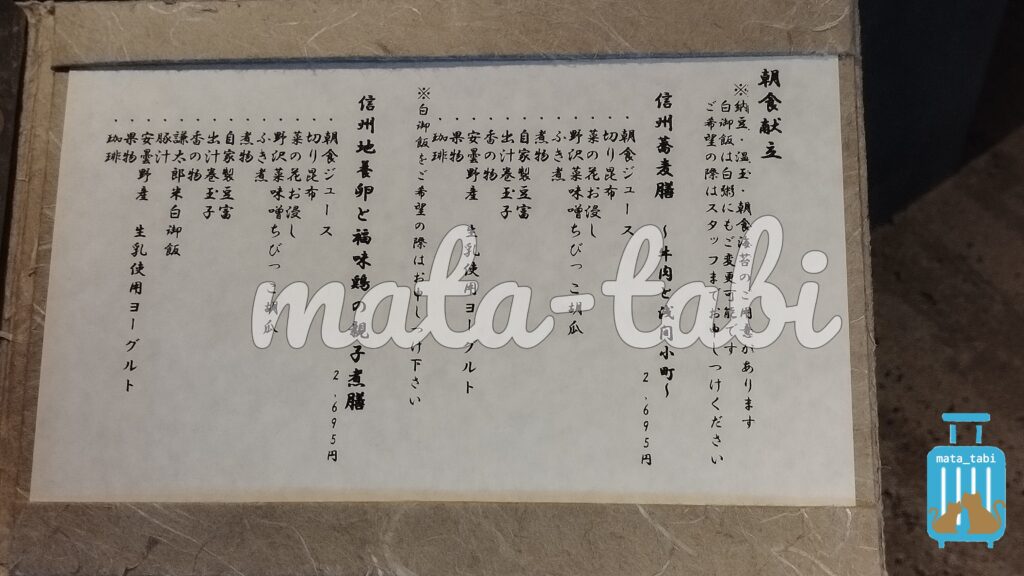 朝食献立
※納豆、温玉・朝食海苔のご用意があります
白御飯は白粥にもご変更可能です
ご希望の際はスタッフまでお申しつけください
信州蕎麦膳 ～牛肉と浅間小町～
2,695円
・朝食ジュース
・切り昆布
・菜の花お浸し
・野沢菜味噌ちびっこ胡瓜
・ふき煮
・煮物
・自家製豆富
・出汁巻玉子
・香の物
・安曇野産 生乳使用ヨーグルト
・果物
・珈琲
※白御飯をご希望の際はお申しつけ下さい
信州地養卵と福味鶏の親子煮膳
2,695円
・朝食ジュース
・切り昆布
・菜の花お浸し
・野沢菜味噌ちびっこ胡瓜
・ふき煮
・煮物
・自家製豆富
・出汁巻玉子
・香の物
・謙太郎米白御飯
・豚汁
・安曇野産 生乳使用ヨーグルト
・果物
・珈琲
mata-tabi
mata_tabi